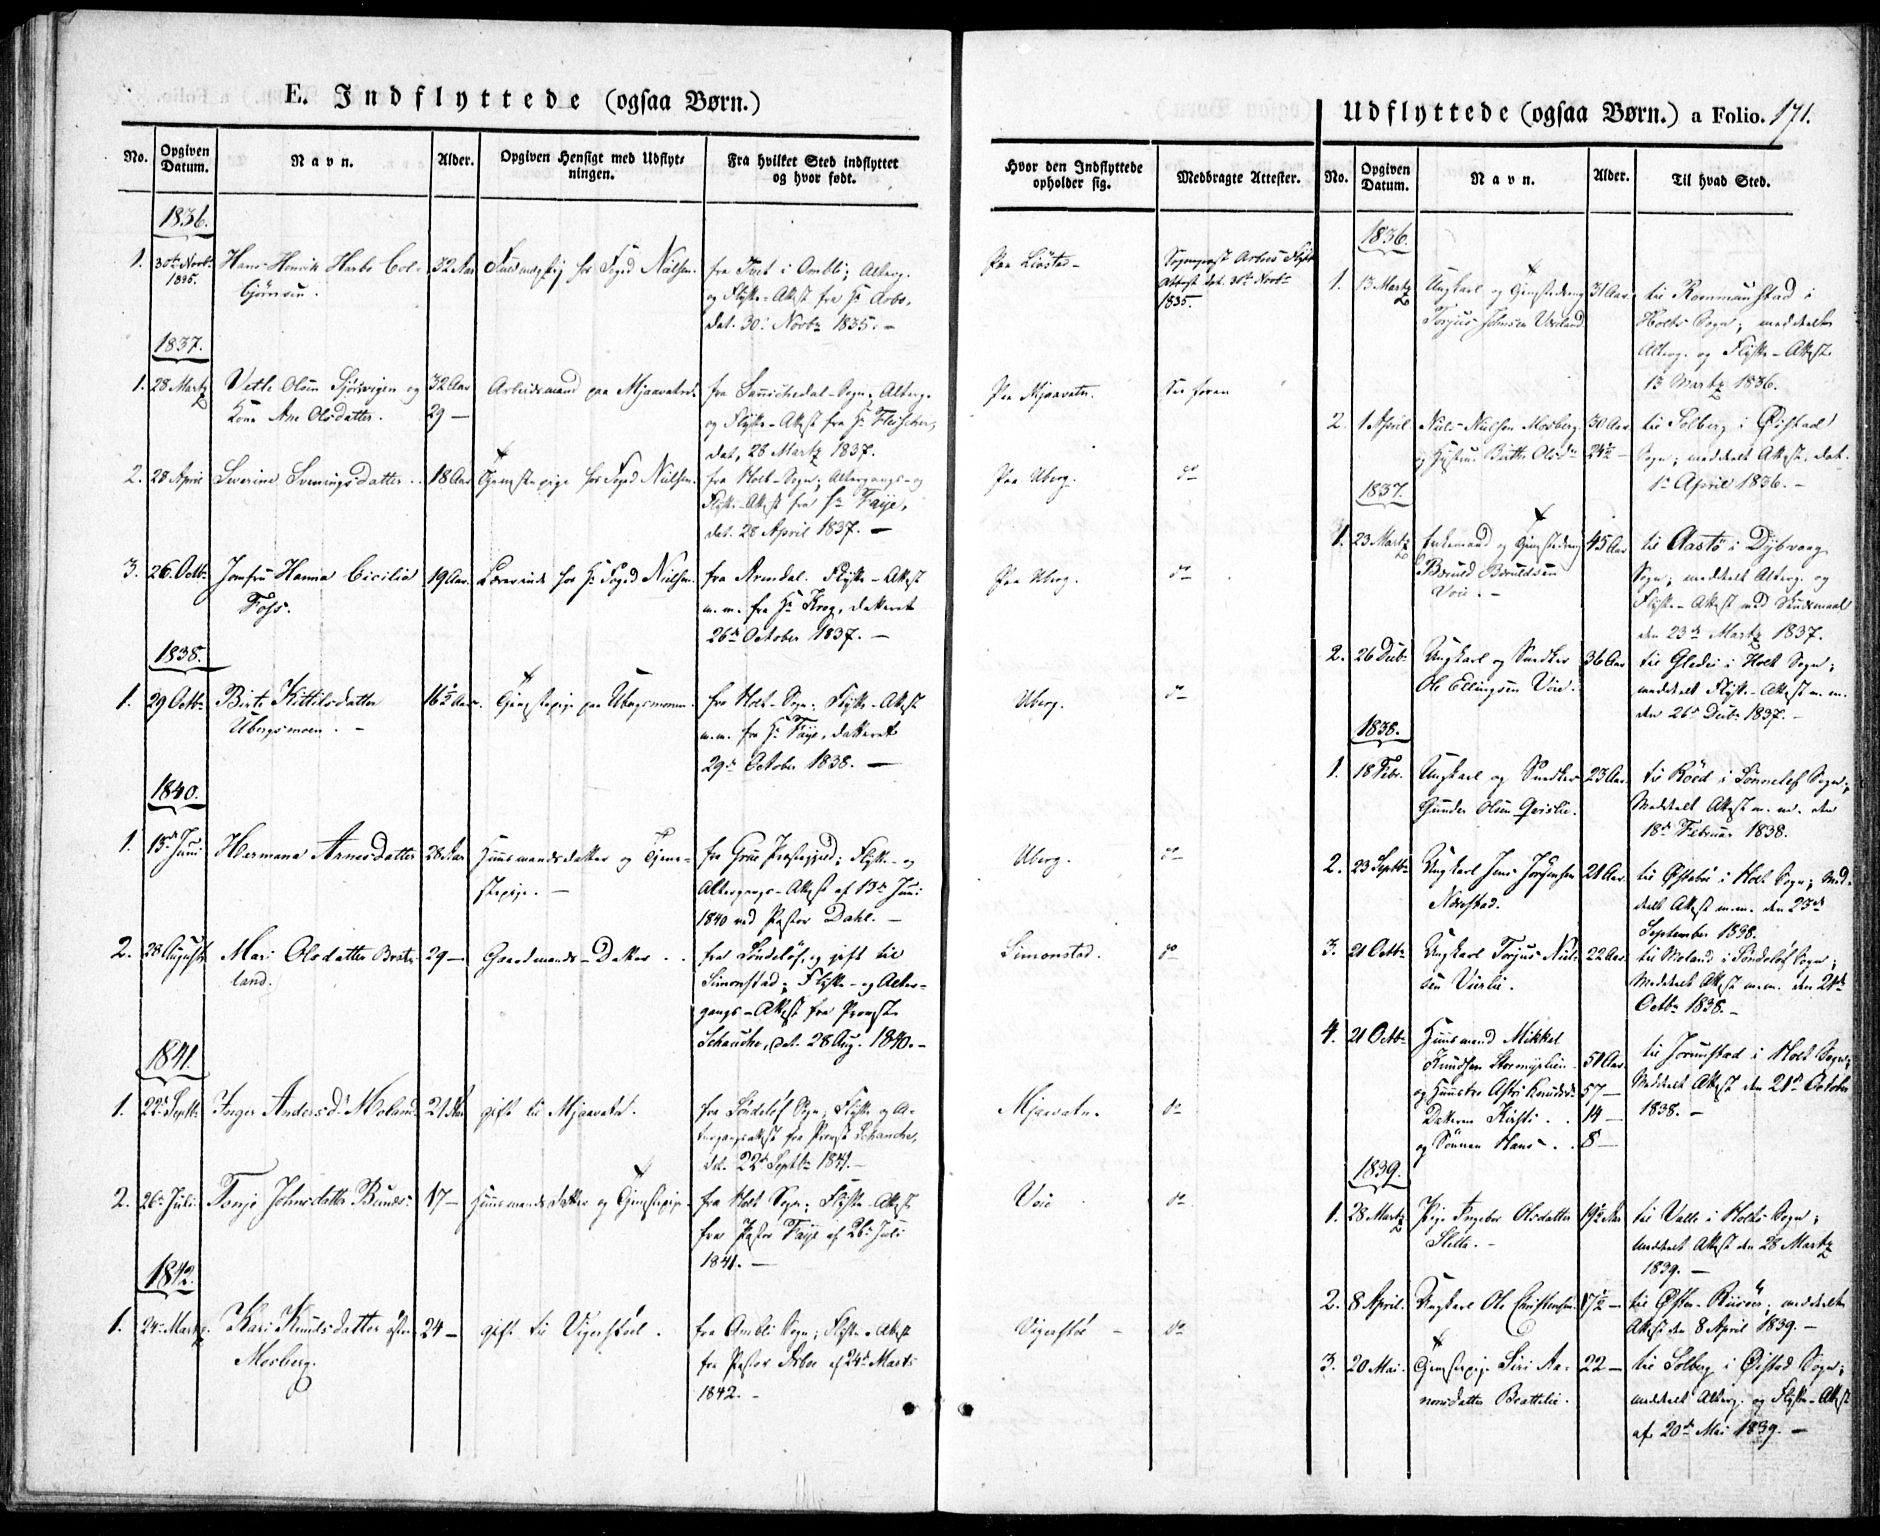 E. Indflyttede (ogsaa Børn.)
No.
Opgiven Datum.
Navn.
Alder.
Opgiven Hensigt med Udflytningen.
Fra hvilket Sted indflyttet og hvor født.
Hvor den Indflyttede opholder sig.
Medbragte Attester.
1836.
1. 30te Novbr 1835. Hans Henrik Harbo
32 Aar
hos Foged Nielsen.
fra Tvet i Omblie, Alterg.
og Flytte-Attest fra Hr Arbo,
dat. 30te Novbr 1835. –
Paa Lindstad –
Attest dat. 30te Novbr
1835.
1837.
1. 28 Martz Vetle Olsen Sjørvigen og
Kone Ane Olsdatter.
32 Aar
29 –
Arbeidsmand paa Mjaavatn.
fra Sannikedal-Sogn; Alterg.
og Flytte-Attest fra Hr Fleischer,
dat. 28 Martz 1837.
Paa Mjaavatn.
2. 28 April Severine Sveningsdatter.
18 Aar
Tjenstepige hos Foged Nielsen.
fra Holt-Sogn; Altergangs- og
Flytte-Attest fra Hr Faÿe,
dat. 28 April 1837. –
Paa Uberg.
do
3. 26 Octbr Jomfru Hanna Cicilia
Foss.
19 Aar.
Lærerinde hos Hr Foged Nielsen.
fra Arendal. Flytte-Attest
m.m. fra Hr Krog, datteret
26de October 1837. –
Paa Uberg.
do
1838.
1. 29 Octbr Birte Kittilsdatter
Ubergsmoen. –
16½ Aar.
Tjenstepige paa Ubergsmoen.
fra Holt-Sogn; Flytte-Attest
m.m. fra Hr Faÿe, datteret
29de October 1838. –
Uberg.
do
1840.
1. 13de Juni Hermana Arnesdatter
28 Aar
Huusmandsdatter og Tjene-
stepige. –
fra Grue Præstegjeld; Flytte- og
Altergangs-Attest af 13de Juni
1840 ved Pastor Dahl. –
Uberg.
do
2. 28 August Mari Olsdatter
land.
29 –
Gaardmands-Datter.
fra Søndeløf, og gift til
Simonstad; Flytte- og Alter-
gangs-Attest fra Provst
Schanche, dat. 28 Aug. 1840. –
Simonstad.
do
1841.
1. 22de Septbr Inger Andersd. Moland
21 Aar
gift til Mjaavatn.
fra Søndeløf Sogn; Flytte og A-
tergangsattest fra Provst Schanche,
dat. 22de Septbr 1841. –
Mjaavatn.
do
2. 26de Juli Tonje Johnsdatter
17 –
Huusmandsdatter og Tjenstepige.
fra Holt Sogn; Flytte-Attest
fra Pastor Faÿe af 26de Juli
1841. –
Voie
do
1842.
1. 24de Martz Kari Knudsdatter
Mosberg.
24 –
gift til Vigerstøl.
fra Ombli Sogn; Flytte-Attest
fra Pastor Arbo af 24de Marts
1842. –
Vigerstøl –
do
Udflyttede (ogsaa Børn.) a Folio. 171.
No.
Opgiven Datum.
Navn.
Alder.
Til hvad Sted.
1836.
1. 13 Martz Ungkarl og Tjenstedreng
Torjus Johnsen
31 Aar
til Rommunstad i
Holts Sogn; meddeelte
Alterg. og Flytte-Attest
13 Martz 1836.
2. 1 April Niels Nielsen Mosberg
og Hustru Birthe Olsdr
30 Aar
24½ –
til Solberg i Øistad
Sogn; meddeelt Attest, dat.
1te April 1836. –
1837.
1. 23 Martz Enkemand og Tjenstedreng
Bæruld Bæruldsen
Voie. –
45 Aar
til Aastø i Dybvaag
Sogn; meddeelt Alterg. og
Flytte-Attest med Skudsmaal
den 23de Martz 1837.
2. 26 Decbr Ungkarl og Snedker
Ole Ellingsen Voie.
36 Aar
til Gledie i Holt Sogn;
meddeelt Flytte-Attest m.m.
den 26de Decbr 1837. –
1838.
1. 18 Febr. Ungkarl og Snedker
Gunder Olsen Qvislie.
23 Aar
til Röed i Sønneløf Sogn;
Meddeelt Attest m.m. den
18de Februar 1838.
2. 23 Septbr Ungkarl Jens Jørgensen
Næsstad.
21 Aar.
til Østebøe i Holt Sogn; Med-
deelt Attest m.m. den 23de
September 1838.
3. 21 Octbr Ungkarl Torjus Niel-
sen
22 Aar.
til Moland i Søndeløf Sogn;
Meddeelt Attest m.m. den 21de
Octbr 1838. –
4. 21 Octbr Huusmand Mikkel
Knudsen
og Huustro Astri Knudsd.
Datteren Kirsti
og Sønnen Hans
51 Aar
57 –
14 –
8 –
til Jorunstad i Holt Sogn;
Meddeelt Attest den 21de October
1838. –
1839.
1. 28 Martz Pige Ingebor Olsdatter
Slette. –
19½ Aar
til Valle i Holts Sogn;
meddeelt Attest den 28 Martz
1839. –
2. 8 April. Ungkarl Ole Christensen
17½ –
til Øster-Riisøer; meddeelte
Attest den 8 April 1839. –
3. 20 Mai. Tjenstepige Siri Aa-
nonsdatter Brattelie.
22 –
til Solberg i Øistad Sogn;
meddeelt Alterg. og Flytte-Attest
af 20de Mai 1839. –